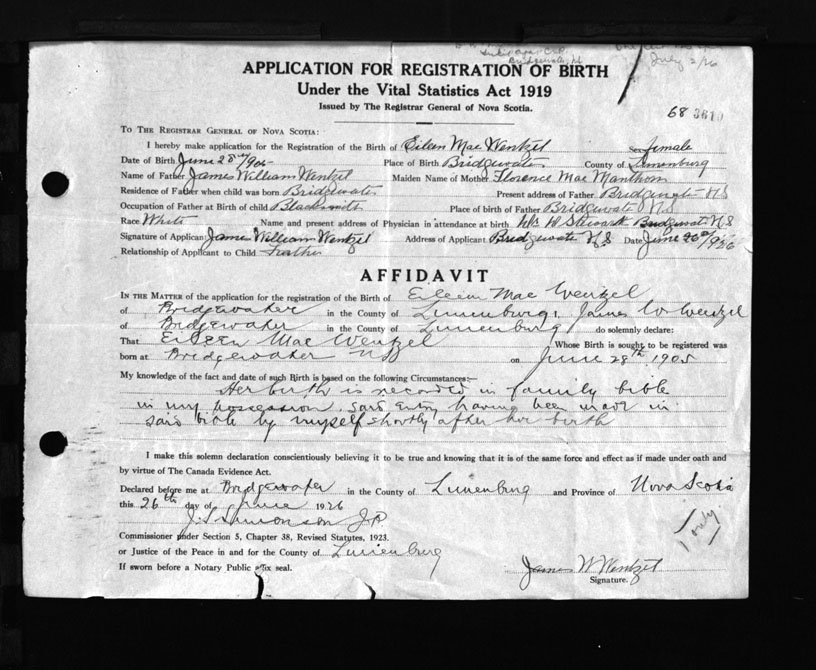 Bridgewater, NS July 2/26
APPLICATION FOR REGISTRATION OF BIRTH
Under the Vital Statistics Act 1919
Issued by The Registrar General of Nova Scotia.
68 3610
TO THE REGISTRAR GENERAL OF NOVA SCOTIA:
I hereby make application for the Registration of the Birth of Eileen Mae Wentzel Sex female
Date of Birth June 28th 1905 Place of Birth Bridgewater County of Lunenburg
Name of Father James William Wentzel Maiden Name of Mother Florence Mae Manthorn
Residence of Father when child was born Bridgewater Present address of Father Bridgewater N.S
Occupation of Father at Birth of child Blacksmith Place of birth of Father Bridgewater N.S
Race White Name and present address of Physician in attendance at birth Bridgewater N.S
Signature of Applicant James William Wentzel Address of Applicant Bridgewater N.S Date June 26th 1926
Relationship of Applicant to Child Father
AFFIDAVIT
IN THE MATTER of the application for the registration of the Birth of Eileen Mae Wentzel
of Bridgewater in the County of Lunenburg, James W Wentzel
of Bridgewater in the County of Lunenburg do solemnly declare:
That Eileen Mae Wentzel Whose Birth is sought to be registered was
born at Bridgewater NS on June 28th 1905
My knowledge of the fact and date of such Birth is based on the following Circumstances:—
Her birth is recorded in family bible
in my possession, said Entry having been made in
said bible by myself shortly after her birth
I make this solemn declaration conscientiously believing it to be true and knowing that it is of the same force and effect as if made under oath and
by virtue of The Canada Evidence Act.
Declared before me at Bridgewater in the County of Lunenburg and Province of Nova Scotia
this 26th day of June 1926
J.P.
Commissioner under Section 5, Chapter 38, Revised Statutes, 1923.
or Justice of the Peace in and for the County of Lunenburg
If sworn before a Notary Public affix seal.
only
James W Wentzel
Signature.